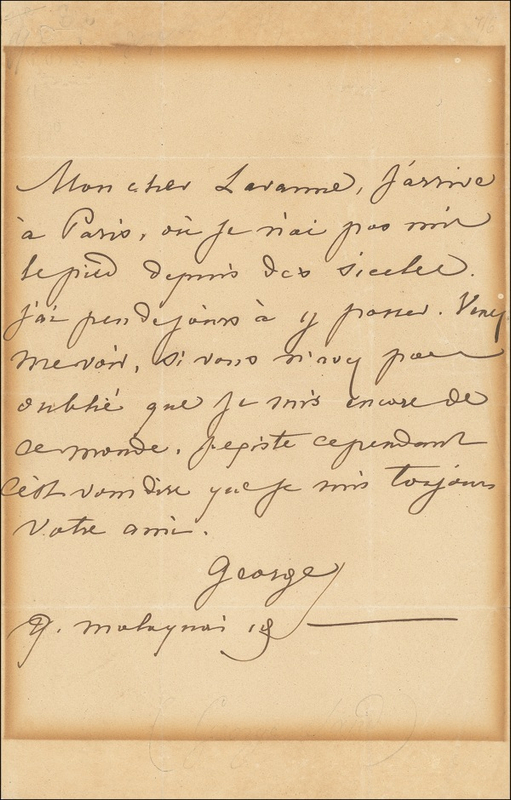 Mon cher Lavanne, j'arrive
à Paris, où je n'ai pas mis
le pied depuis des siecles.
j'ai peu de jours à y passer. Venez
me voir, si vous n'avez pas
oublié que je suis encore de
ce monde. j'existe cependant
c'est vous dire que je suis toujours
votre ami.
George
q. malaquai 19